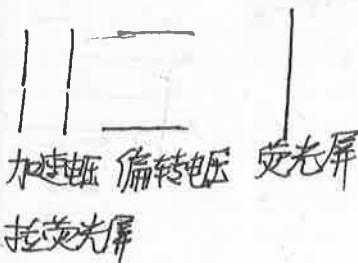 加速电压 偏转电压 荧光屏
拉荧光屏